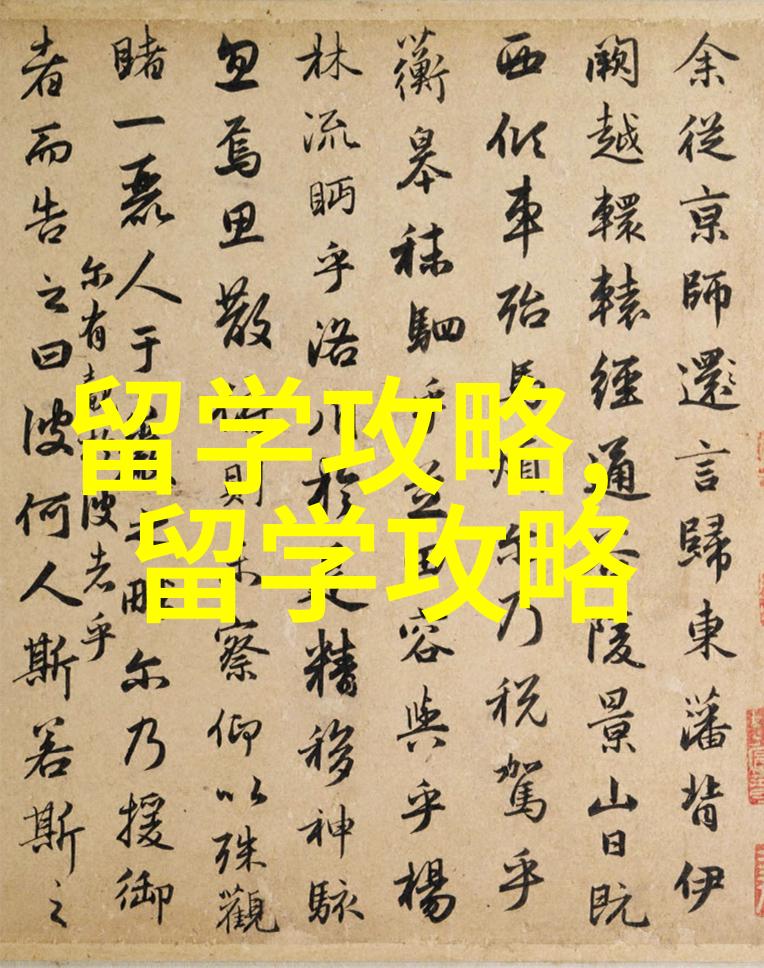 余從京師還言歸東藩背伊
闕越轘轅經通谷陵景山日既
西傾車殆馬煩尔乃税駕乎
蘅皋秣駟乎芝田容與乎楊
林流眄乎洛川於是精移神駭
忽焉思散俯則未察仰以殊觀
睹一麗人于巖之畔尔乃援御
尔有覿於彼者乎
者而告之曰彼何人斯若斯之
留学攻略,
留学攻略